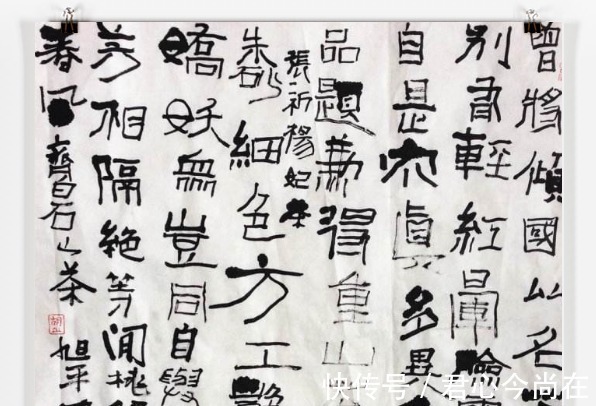 曾將傾國比名
別有輕紅暈臉
自是太真多異
品題兼得重山
張祈楊妃茶
朱砂細色方工
嬌妖無豈同自
芳相隔絶等閒桃
春風 齊白石山茶 旭平
快传号 / 君心今尚在